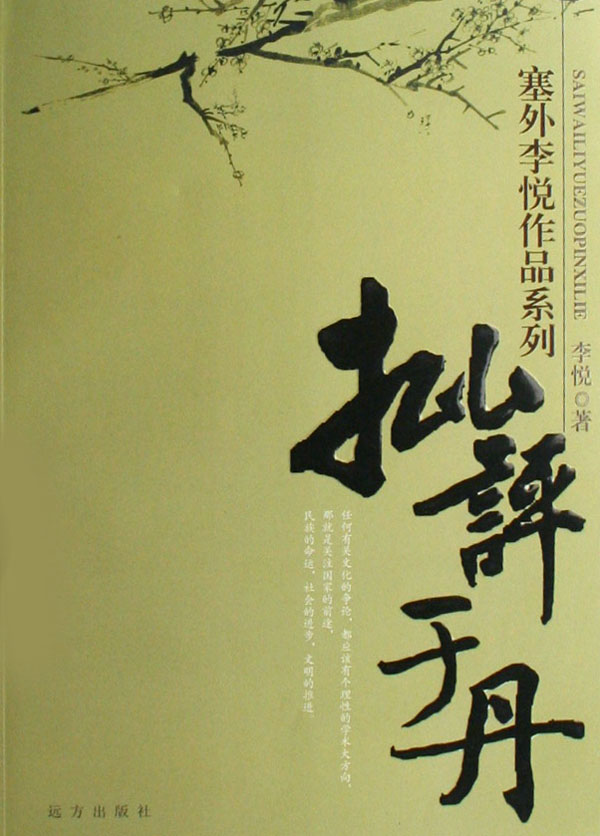 塞外李悦作品系列
SAIWAILIYUEZUOPINXILIE
李悦◎著
批評于丹
任何有关文化的争论，都应该有个理性的学术大方向，
那就是关注国家的前途、
民族的命运、社会的进步、文明的推进。
远方出版社